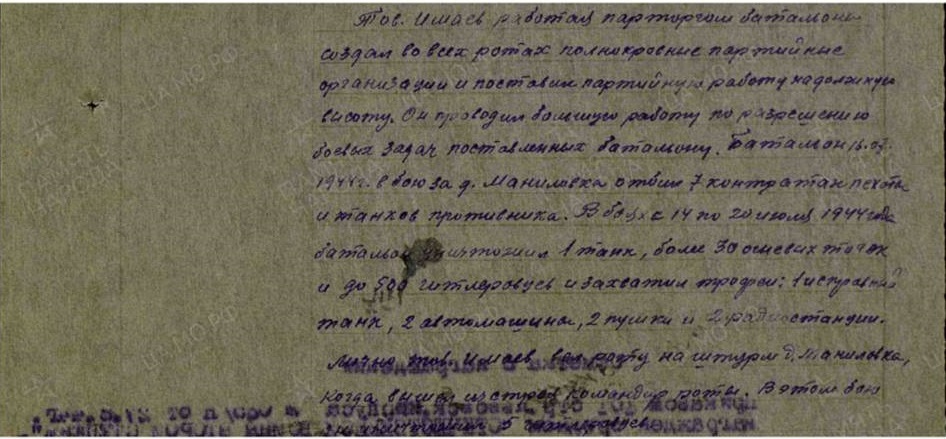 Тов. Имаев работая парторгом батальона
создал во всех ротах полнокровные партийные
организации и поставил партийную работу на должную
высоту. Он проводил большую работу по разрешению
боевых задач поставленных батальону. Батальон 16.07.
1944г. в бою за д. Маниловка отбил 7 контратак пехоты
и танков противника. В боях с 14 по 20 июля 1944 года
батальон уничтожил 1 танк, более 30 огневых точек
и до 500 гитлеровцев и захватил трофеи: 1 исправный
танк, 2 автомашины, 2 пушки и 2 радиостанции.
Лично тов. Имаев вел роту на штурм д. Маниловка,
когда вышел из строя командир роты. В этом бою
уничтожил 5 гитлеровцев